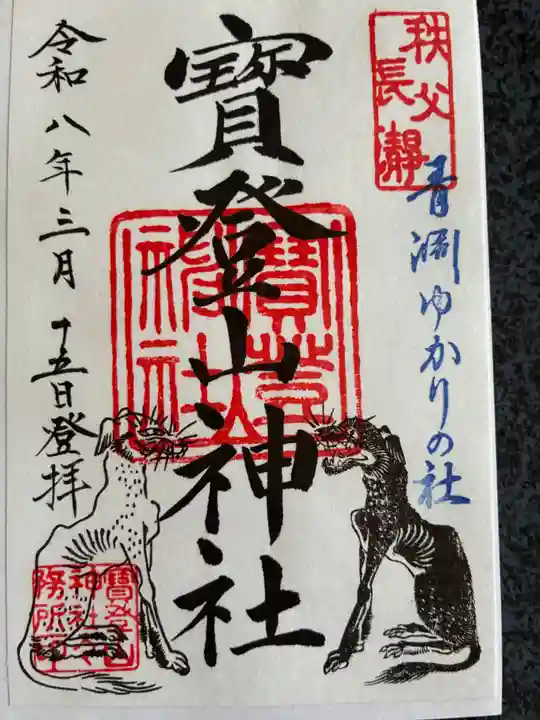 秩父
長瀞
青淵ゆかりの社
寳登山神社
寳登山
神社
令和八年三月十五日登拝
寳登山
神社
務所印